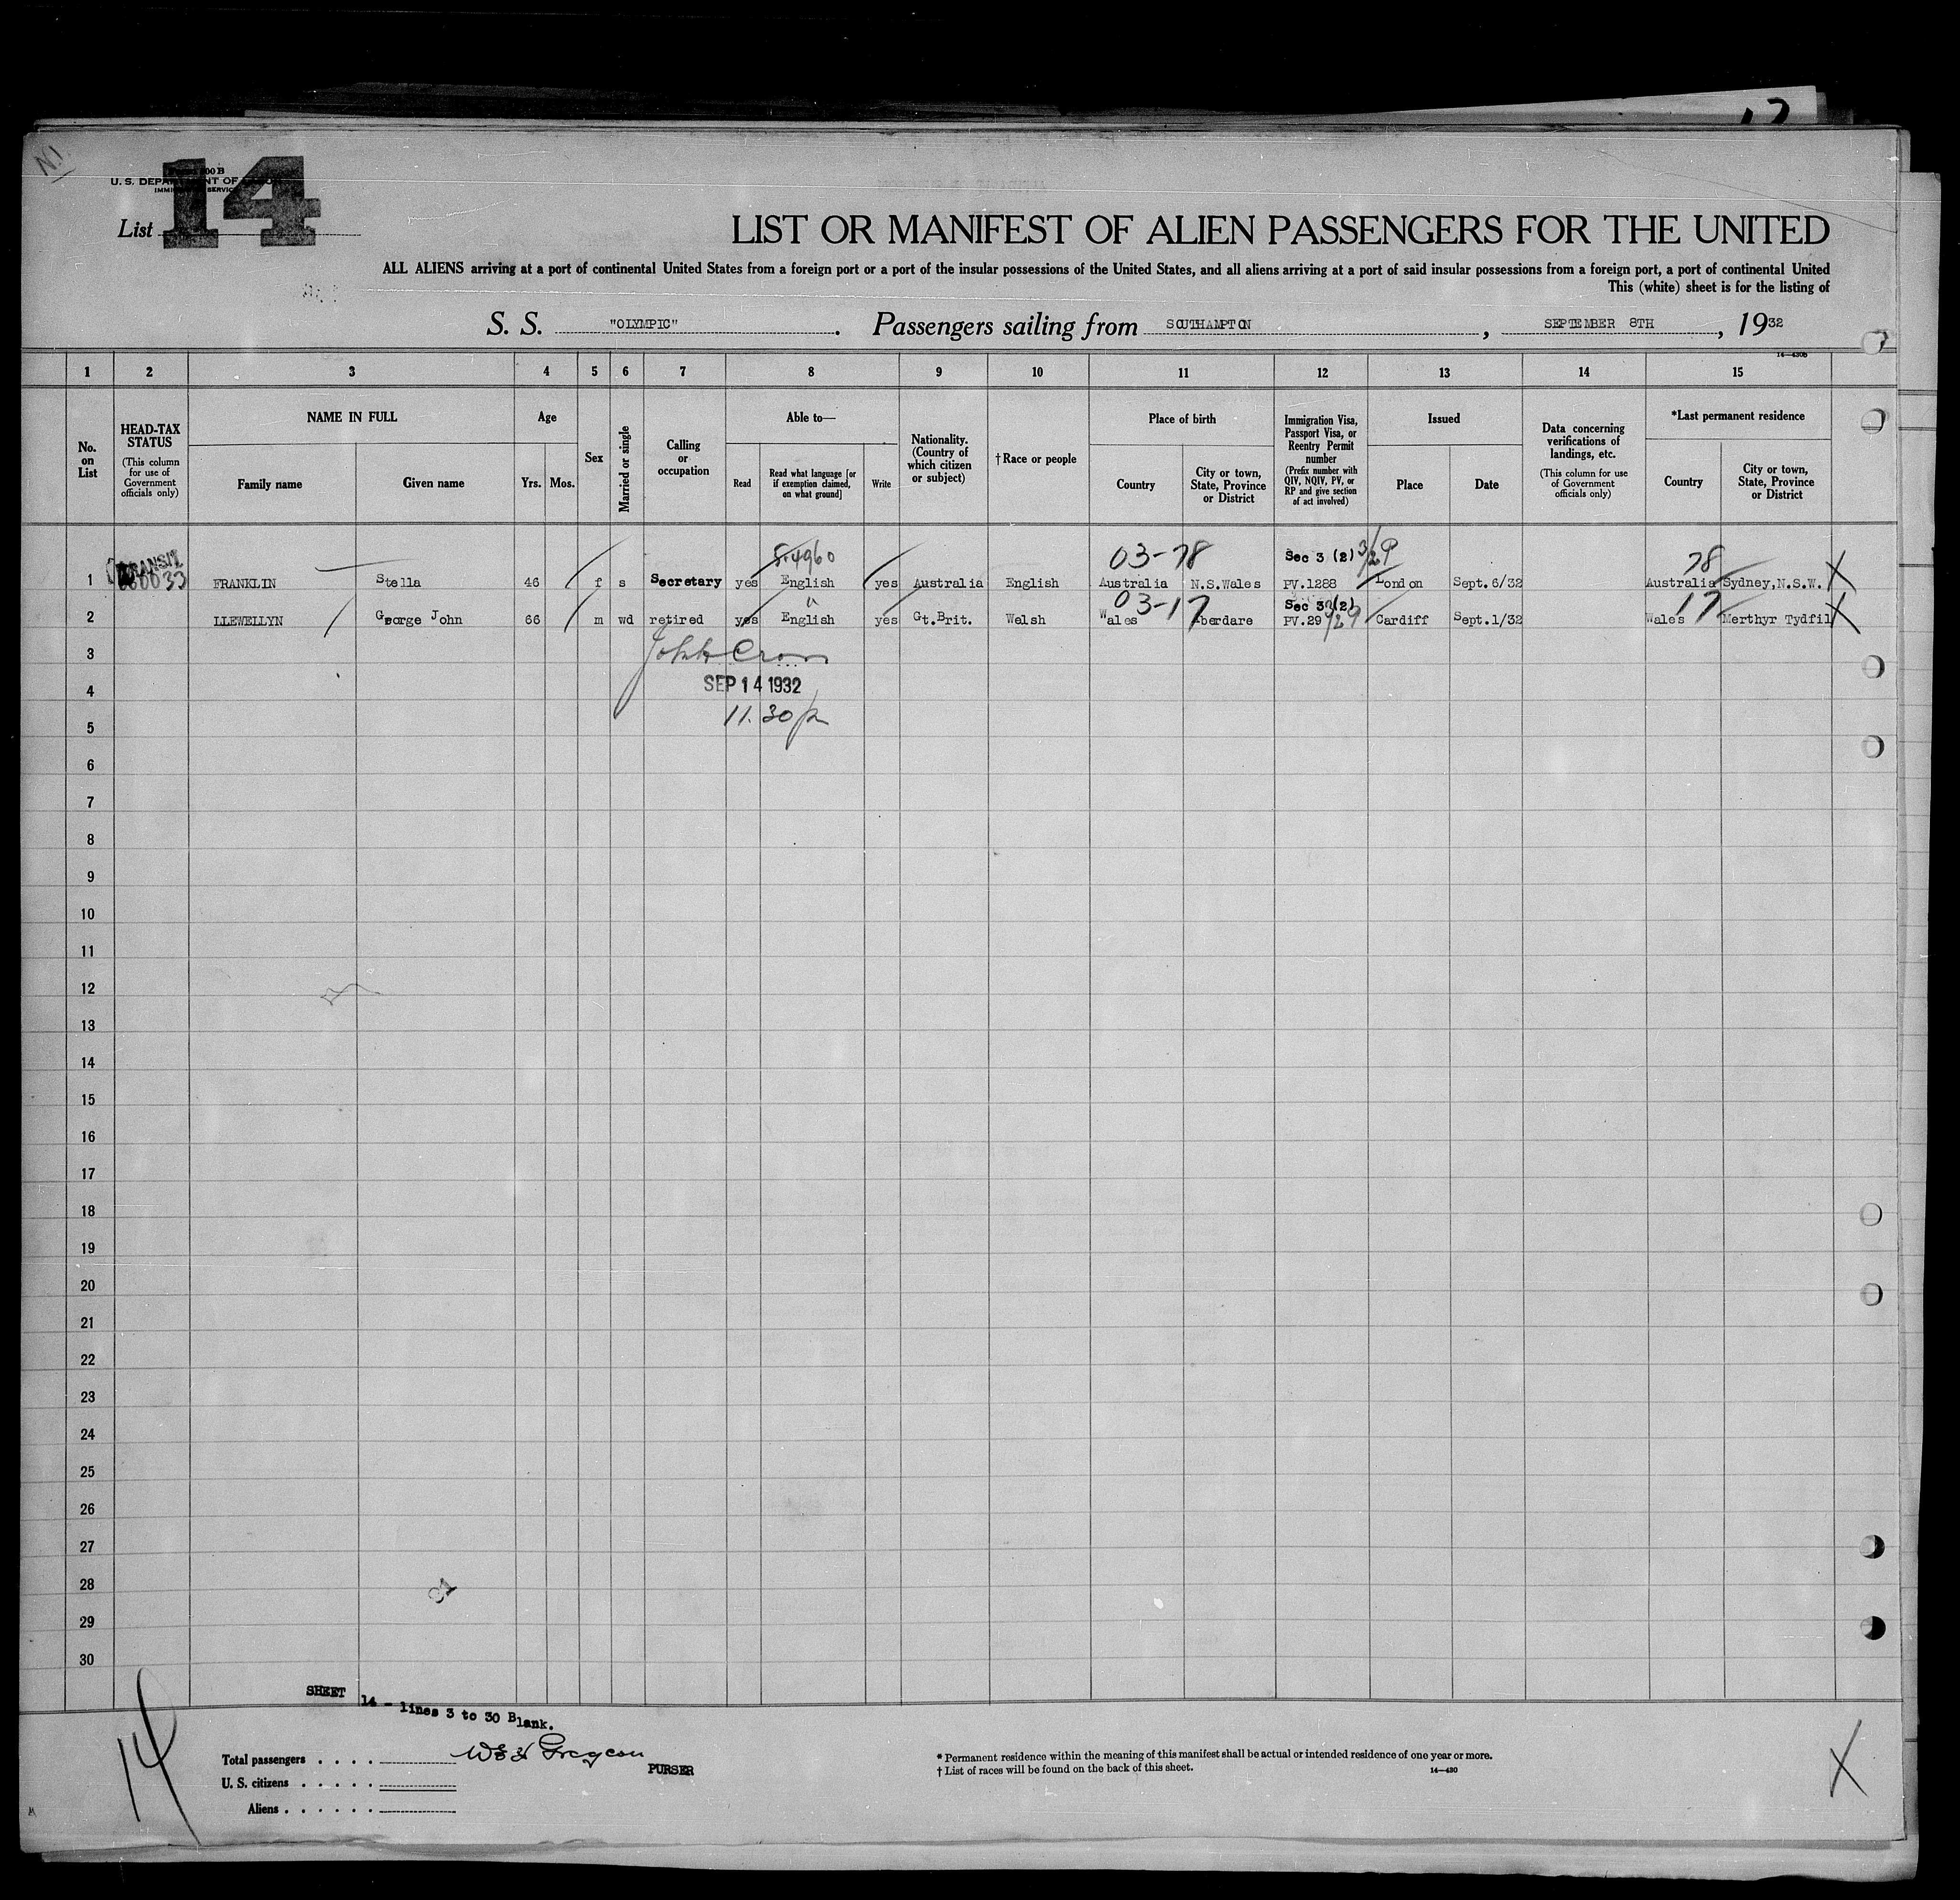 14
U. S. DEPARTMENT OF
List
LIST OR MANIFEST OF ALIEN PASSENGERS FOR THE UNITED
ALL ALIENS arriving at a port of continental United States from a foreign port or a port of the insular possessions of the United States, and all aliens arriving at a port of said insular possessions from a foreign port, a port of continental United
This (white) sheet is for the listing of
S. S. "OLYMPIC". Passengers sailing from SOUTHAMPTON, SEPTEMBER 8TH, 1932
1 2 3 4 5 6 7 8 9 10 11 12 13 14 15
No. on List
HEAD-TAX STATUS (This column for use of Government officials only)
NAME IN FULL
Family name Given name
Age
Yrs. Mos.
Sex
Married or single
Calling or occupation
Able to—
Read
Read what language [or if exemption claimed, on what ground]
Write
Nationality. (Country of which citizen or subject)
†Race or people
Place of birth
Country
City or town, State, Province or District
Immigration Visa, Passport Visa, or Reentry Permit number (Prefix number with QIV, NQIV, PV, or RP and give section of act involved)
Issued
Place Date
Data concerning verifications of landings, etc. (This column for use of Government officials only)
*Last permanent residence
Country
City or town, State, Province or District
TRANSIT 03-78 Sec 3 (2) 3/29 78
1 FRANKLIN Stella 46 f s Secretary yes English yes Australia English Australia N.S.Wales PV.1288 London Sept.6/32 Australia Sydney,N.S.W. X
03-17 Sec 3 (2) 17
2 LLEWELLYN George John 66 m wd retired yes English yes Gt.Brit. Welsh Wales Aberdare PV.29 Cardiff Sept.1/32 Wales Merthyr Tydfil X
3
4 SEP 14 1932
5 11.30 p
6
7
8
9
10
11
12
13
14
15
16
17
18
19
20
21
22
23
24
25
26
27
28
29
30
SHEET 14 - lines 3 to 30 Blank.
14
Total passengers . . . .
PURSER
U. S. citizens . . . . .
Aliens . . . . . .
* Permanent residence within the meaning of this manifest shall be actual or intended residence of one year or more.
† List of races will be found on the back of this sheet.
14—430
X